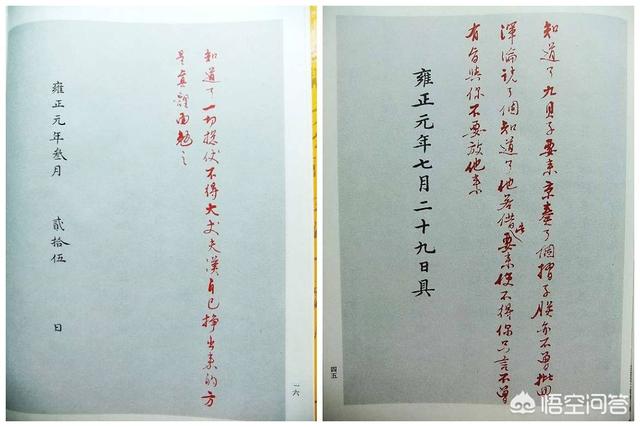 知道了一切捴仗不得大丈夫漢自己掙出来的方
是真體面勉之
雍正元年叁月 貳拾伍 日
一六
知道了九貝子要来京奏了個摺子朕亦不曾批回
渾淪說了個知道了他若借此要来使不得你只言不曾
有旨與你不要放他来
雍正元年七月二十九日具
四五
悟空问答